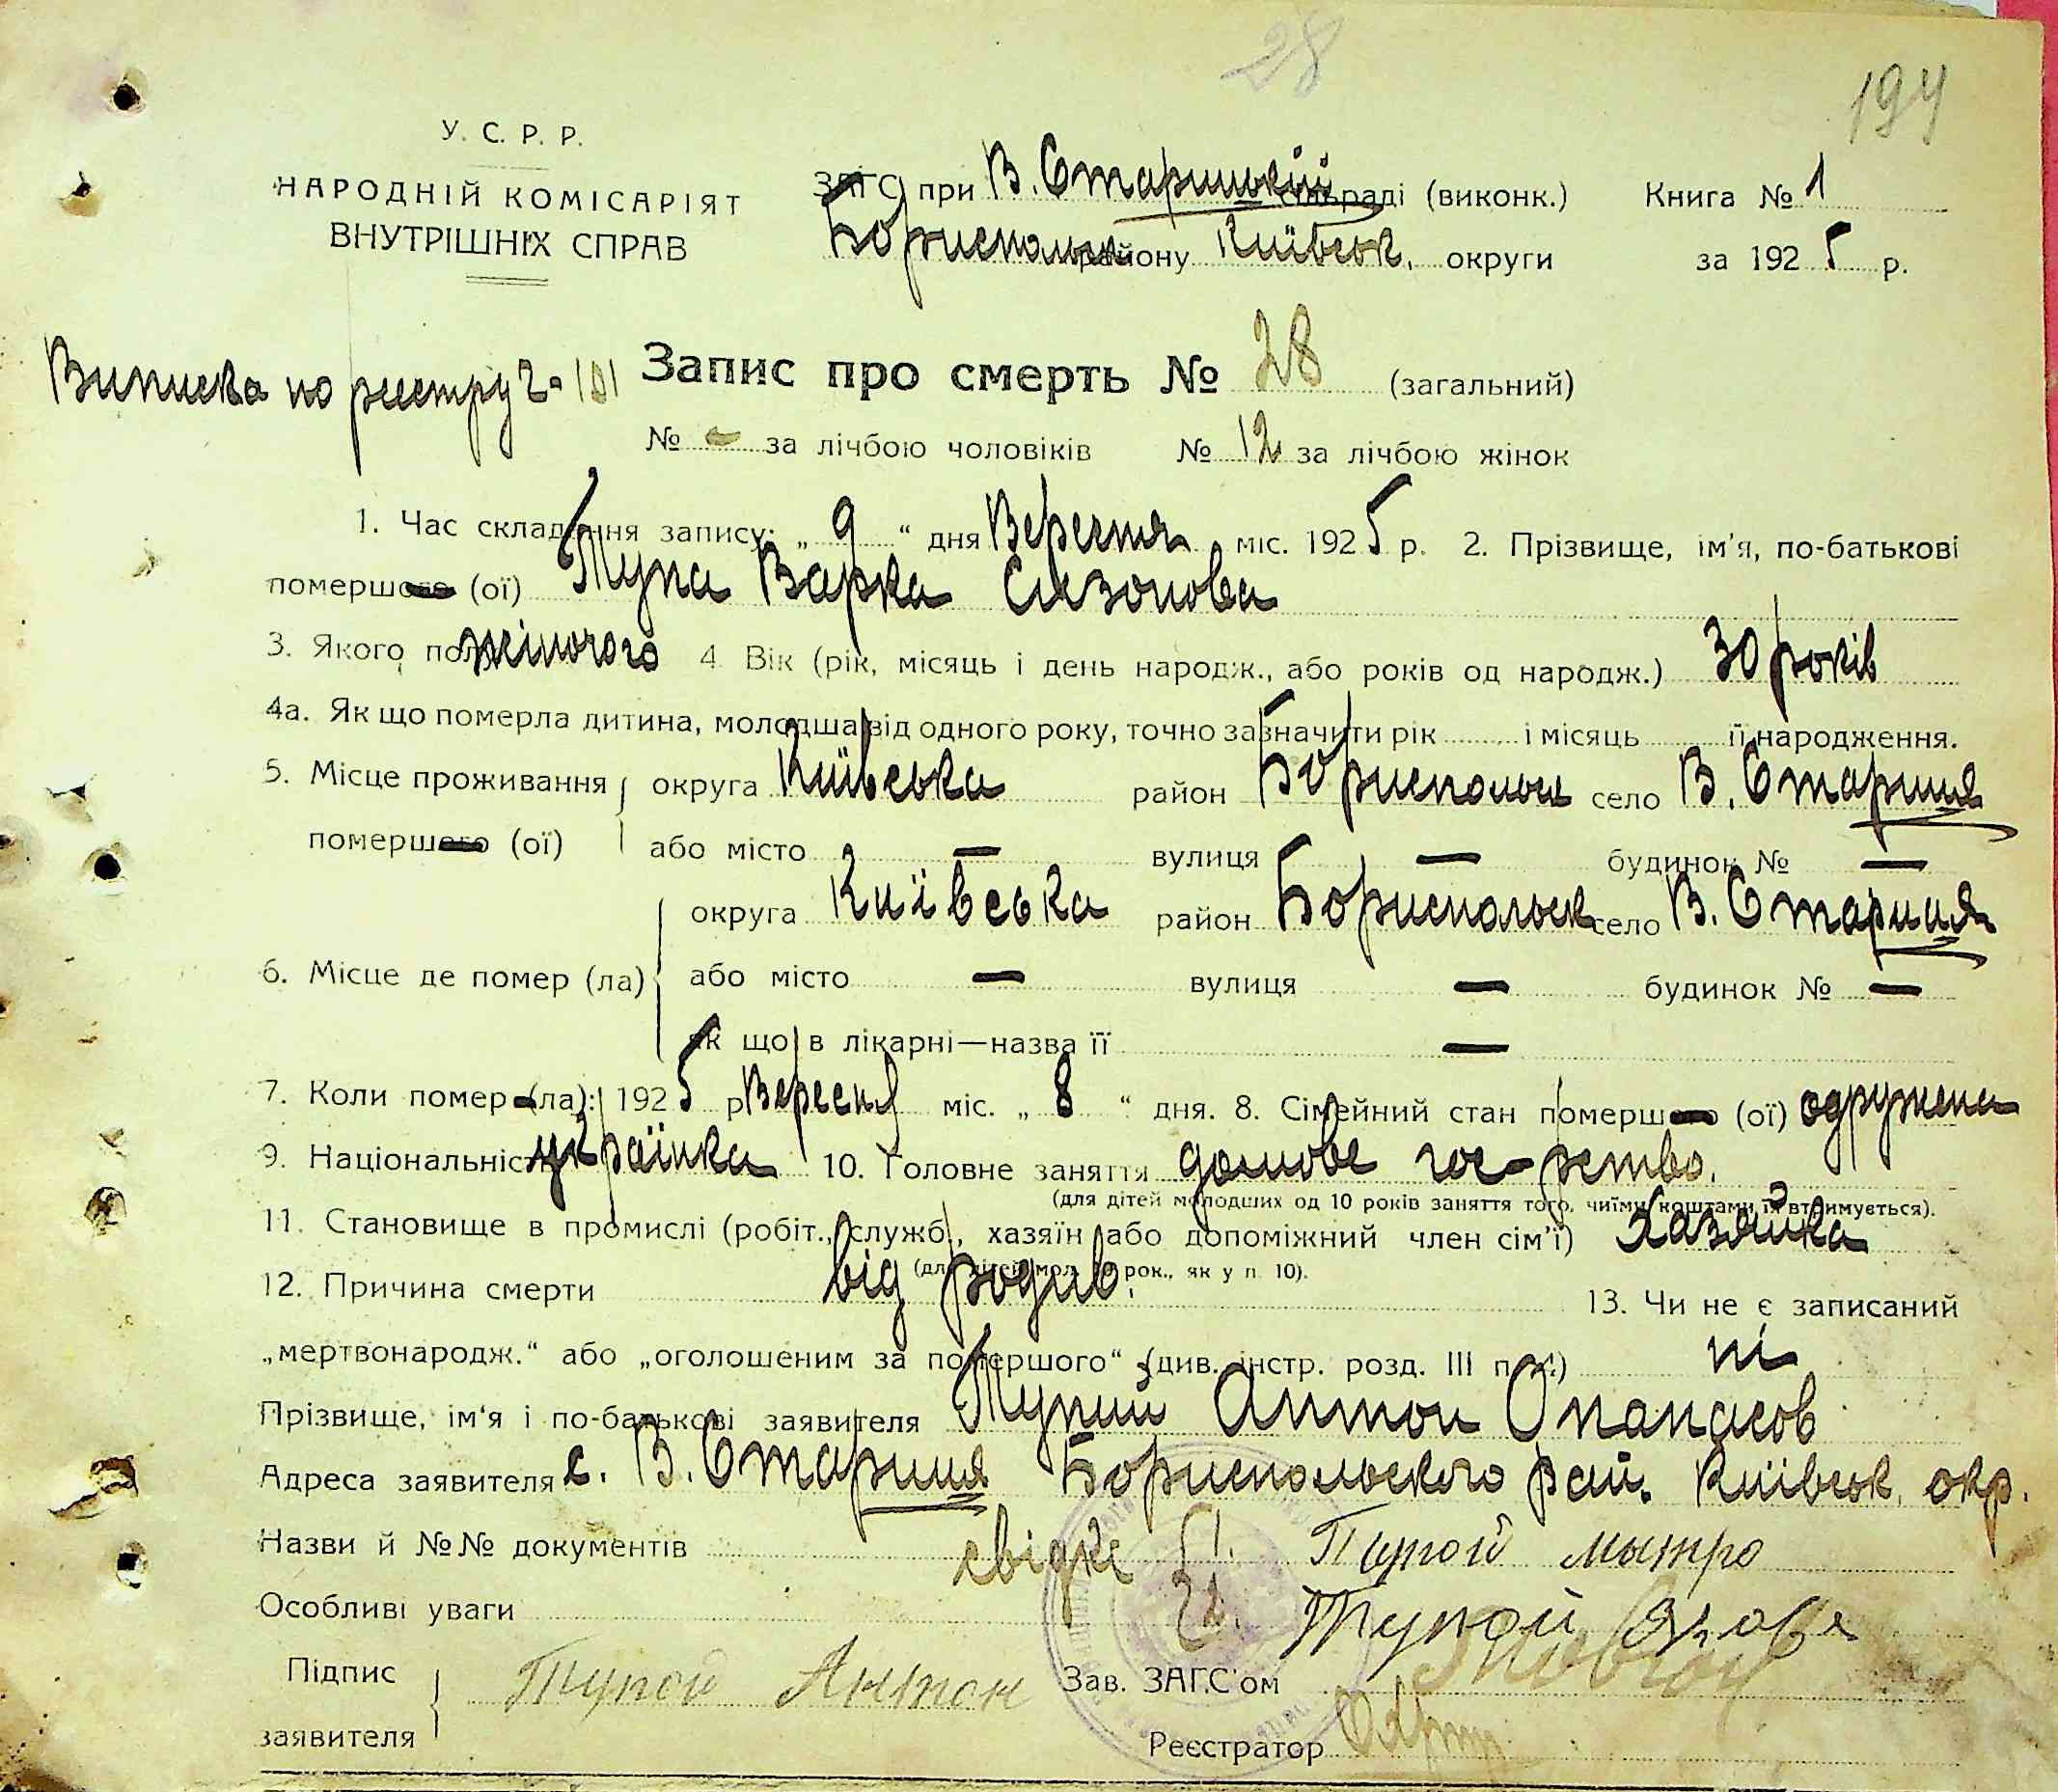 28
194
У. С. Р. Р.
НАРОДНІЙ КОМІСАРІЯТ
ВНУТРІШНІХ СПРАВ
ЗАГС при В. Старицькій сільраді (виконк.) Книга № 1
Бориспольск району Київськ. округи за 1925 р.
Виписка по реестру Ч- 101 Запис про смерть № 28 (загальний)
№ - за лічбою чоловіків № 12 за лічбою жінок
1. Час складання запису: „ 9 “ дня Вересня міс. 1925 р. 2. Прізвище, ім'я, по-батькові
помершого (ої) Тупа Варка Сизонова
3. Якого полу жіночого 4. Вік (рік, місяць і день народж., або років од народж.) 30 років
4а. Як що померла дитина, молодша від одного року, точно зазначити рік і місяць її народження.
5. Місце проживання округа Київська район Бориспольськ село В. Стариця
помершого (ої) або місто — вулиця — будинок № —
округа Київська район Бориспольськ село В. Стариця
6. Місце де помер (ла) або місто — вулиця — будинок № —
як що в лікарні—назва її —
7. Коли помер (ла): 1925 р Вересня міс. „ 8 “ дня. 8. Сімейний стан померш (ої) одружена
9. Національність українка 10. Головне заняття домове гос-рство.
(для дітей молодших од 10 років заняття того, чиїми коштами їх втримується).
11. Становище в промислі (робіт., служб., хазяїн або допоміжний член сім'ї) хазяйка
(для дітей мол. 10 рок., як у п. 10).
12. Причина смерти від родив. 13. Чи не є записаний
„мертвонародж.“ або „оголошеним за помершого“ (див. інстр. розд. III п. ) ні
Прізвище, ім'я і по-батькові заявителя Тупий Антон Опанасов
Адреса заявителя с. В. Стариця Бориспольського рай. Київськ. окр.
Назви й №№ документів свідкі 1. Тупой Мытро
Особливі уваги 2. Тупой Якова
Підпис
заявителя Тупой Антон Зав. ЗАГС'ом
Реєстратор